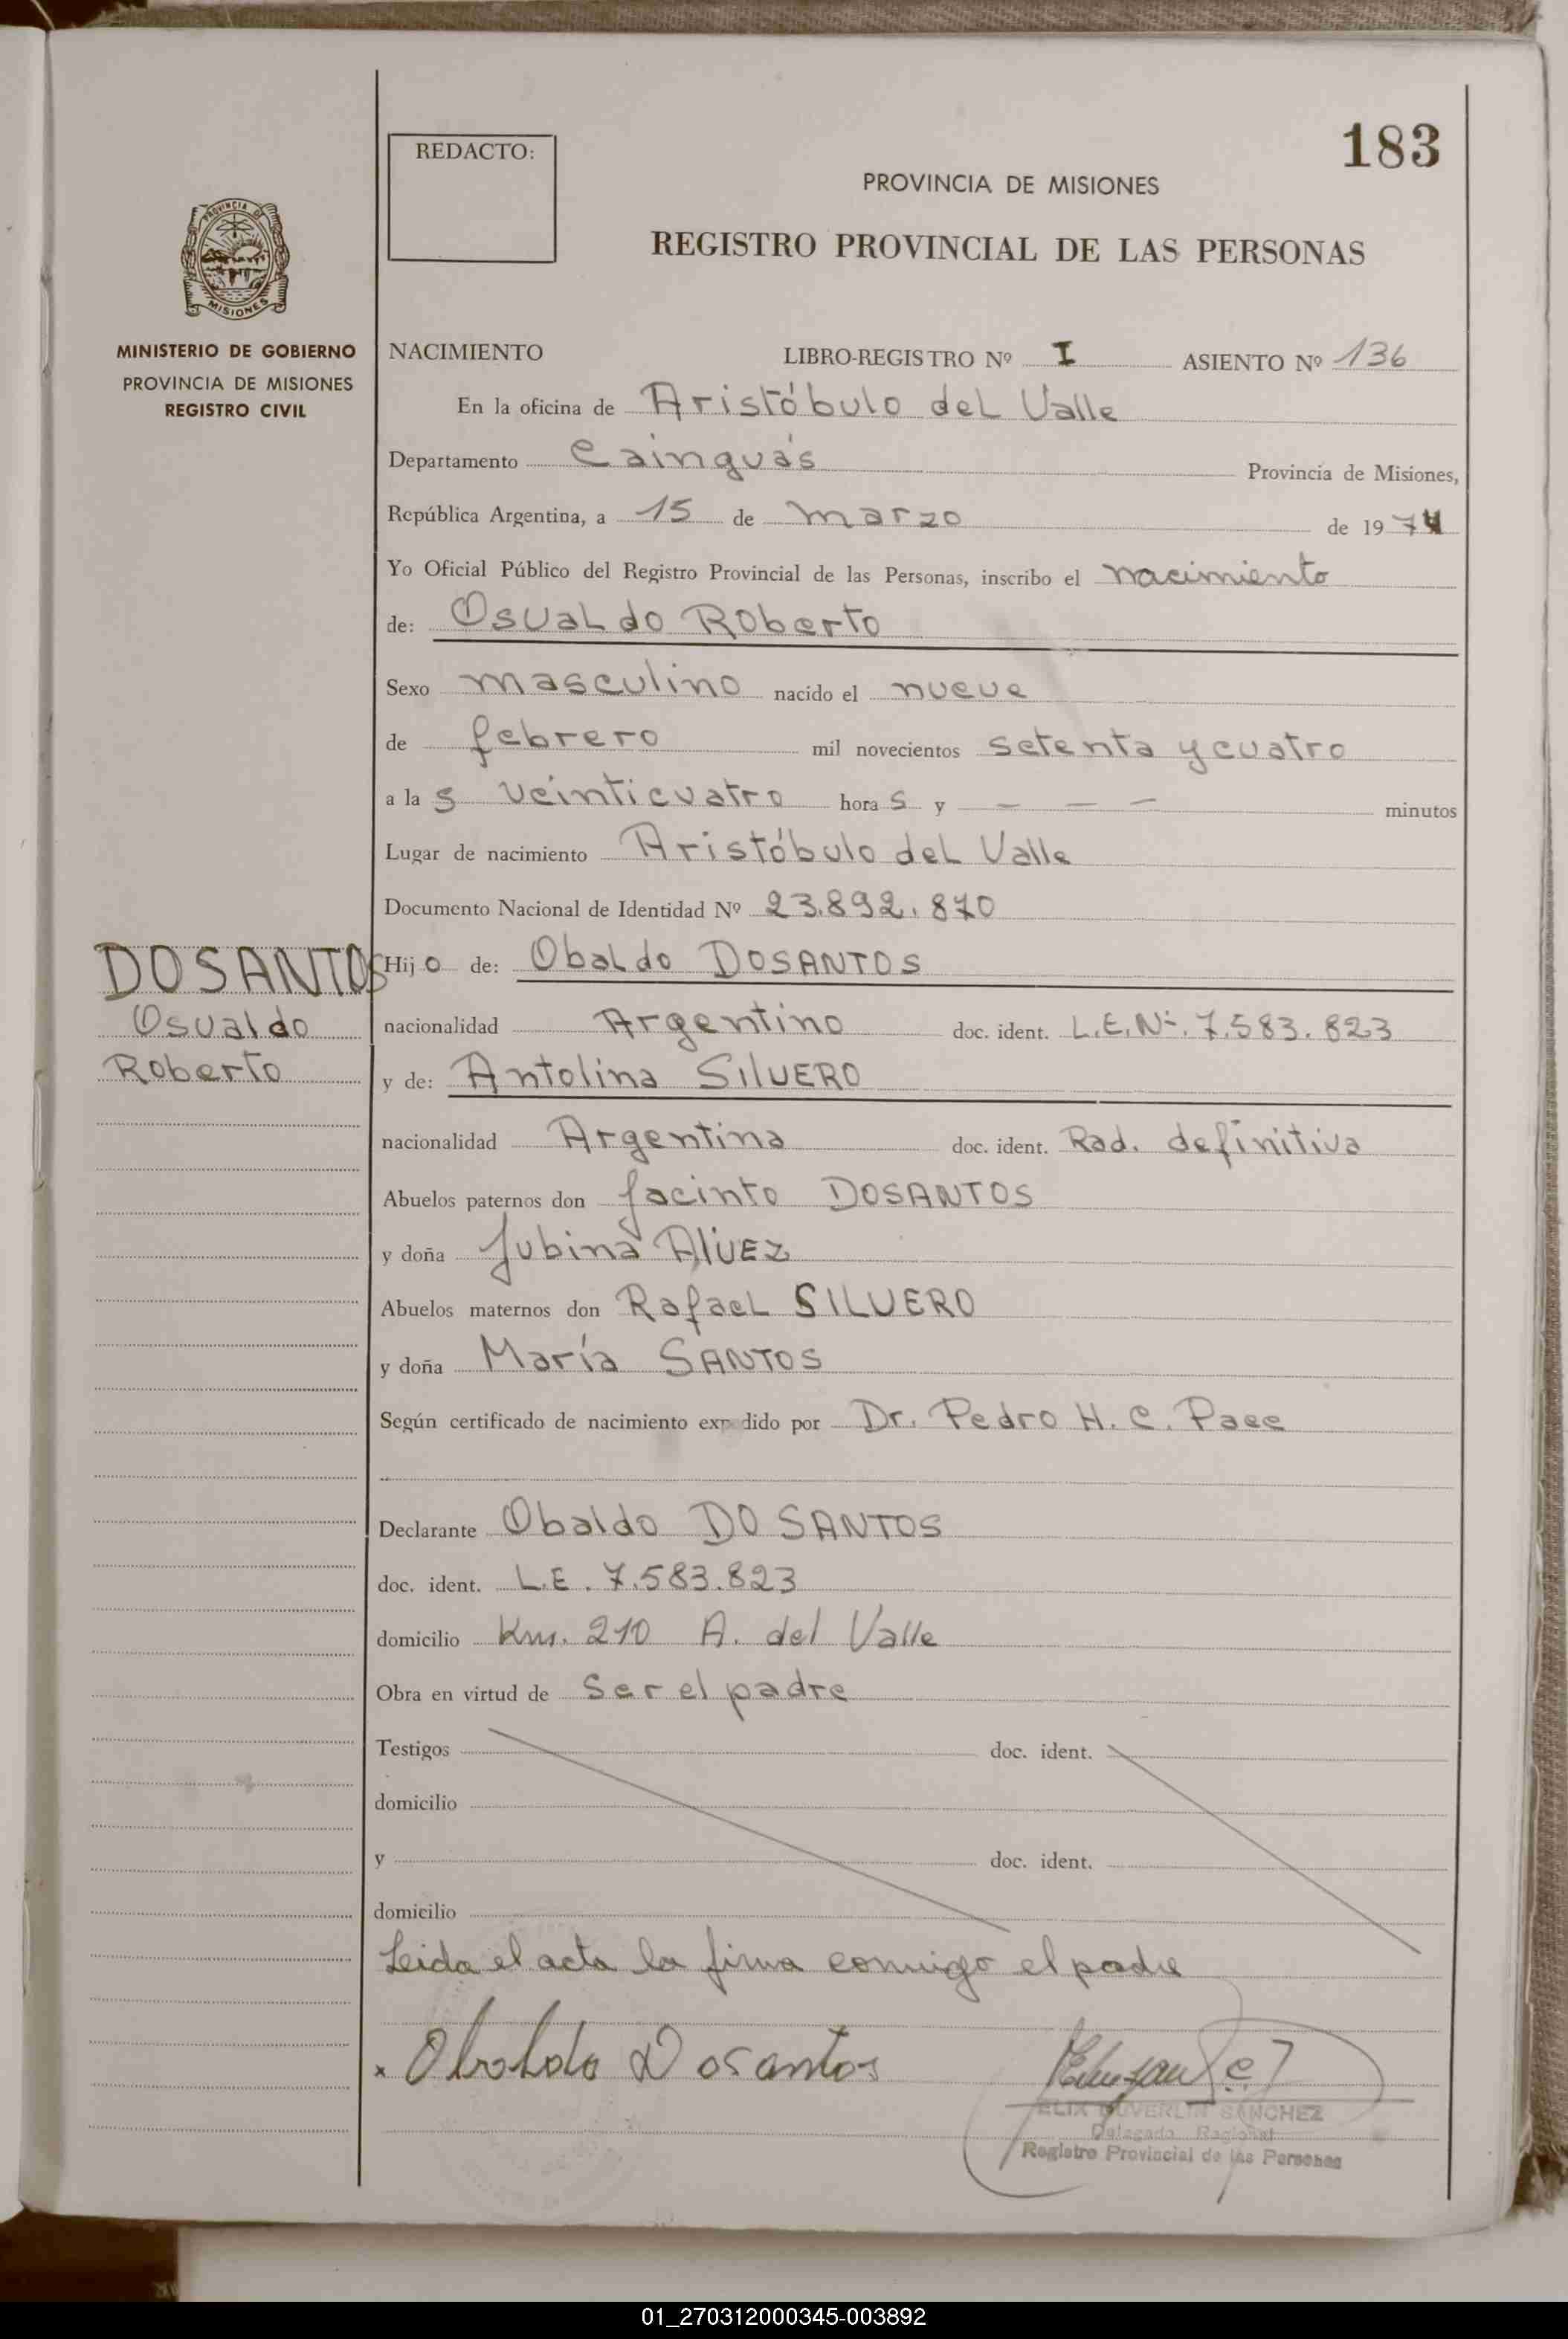 183
REDACTO:
PROVINCIA DE MISIONES
REGISTRO PROVINCIAL DE LAS PERSONAS
PROVINCIA DE
MISIONES
MINISTERIO DE GOBIERNO
PROVINCIA DE MISIONES
REGISTRO CIVIL
NACIMIENTO LIBRO-REGISTRO Nº I ASIENTO Nº 136
En la oficina de Aristóbulo del Valle
Departamento Cainguás Provincia de Misiones,
República Argentina, a 15 de marzo de 1974
Yo Oficial Público del Registro Provincial de las Personas, inscribo el nacimiento
de: Osvaldo Roberto
Sexo masculino nacido el nueve
de febrero mil novecientos setenta y cuatro
a la s veinticuatro hora s y — — — minutos
Lugar de nacimiento Aristóbulo del Valle
Documento Nacional de Identidad Nº 23.892.870
DOSANTOS
Osvaldo
Roberto
Hijo de: Obaldo DOSANTOS
nacionalidad Argentino doc. ident. L.E.Nº. 7.583.823
y de: Antolina SILVERO
nacionalidad Argentina doc. ident. Rad. definitiva
Abuelos paternos don Jacinto DOSANTOS
y doña Jubina AlVEZ
Abuelos maternos don Rafael SILVERO
y doña María SANTOS
Según certificado de nacimiento expedido por Dr. Pedro H. C. Paee
Declarante Obaldo DO SANTOS
doc. ident. L.E. 7.583.823
domicilio Km. 210 A. del Valle
Obra en virtud de Ser el padre
Testigos doc. ident.
domicilio
y doc. ident.
domicilio
Leida el acta la firma conmigo el padre
x Obaldo Dosantos
SANCHEZ
Delegado Regional
Registro Provincial de las Personas
01_270312000345-003892